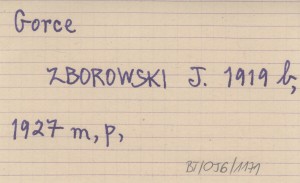 Gorce
ZBOROWSKI J. 1919 b,
1927 m, p,
BT/OJG/1171